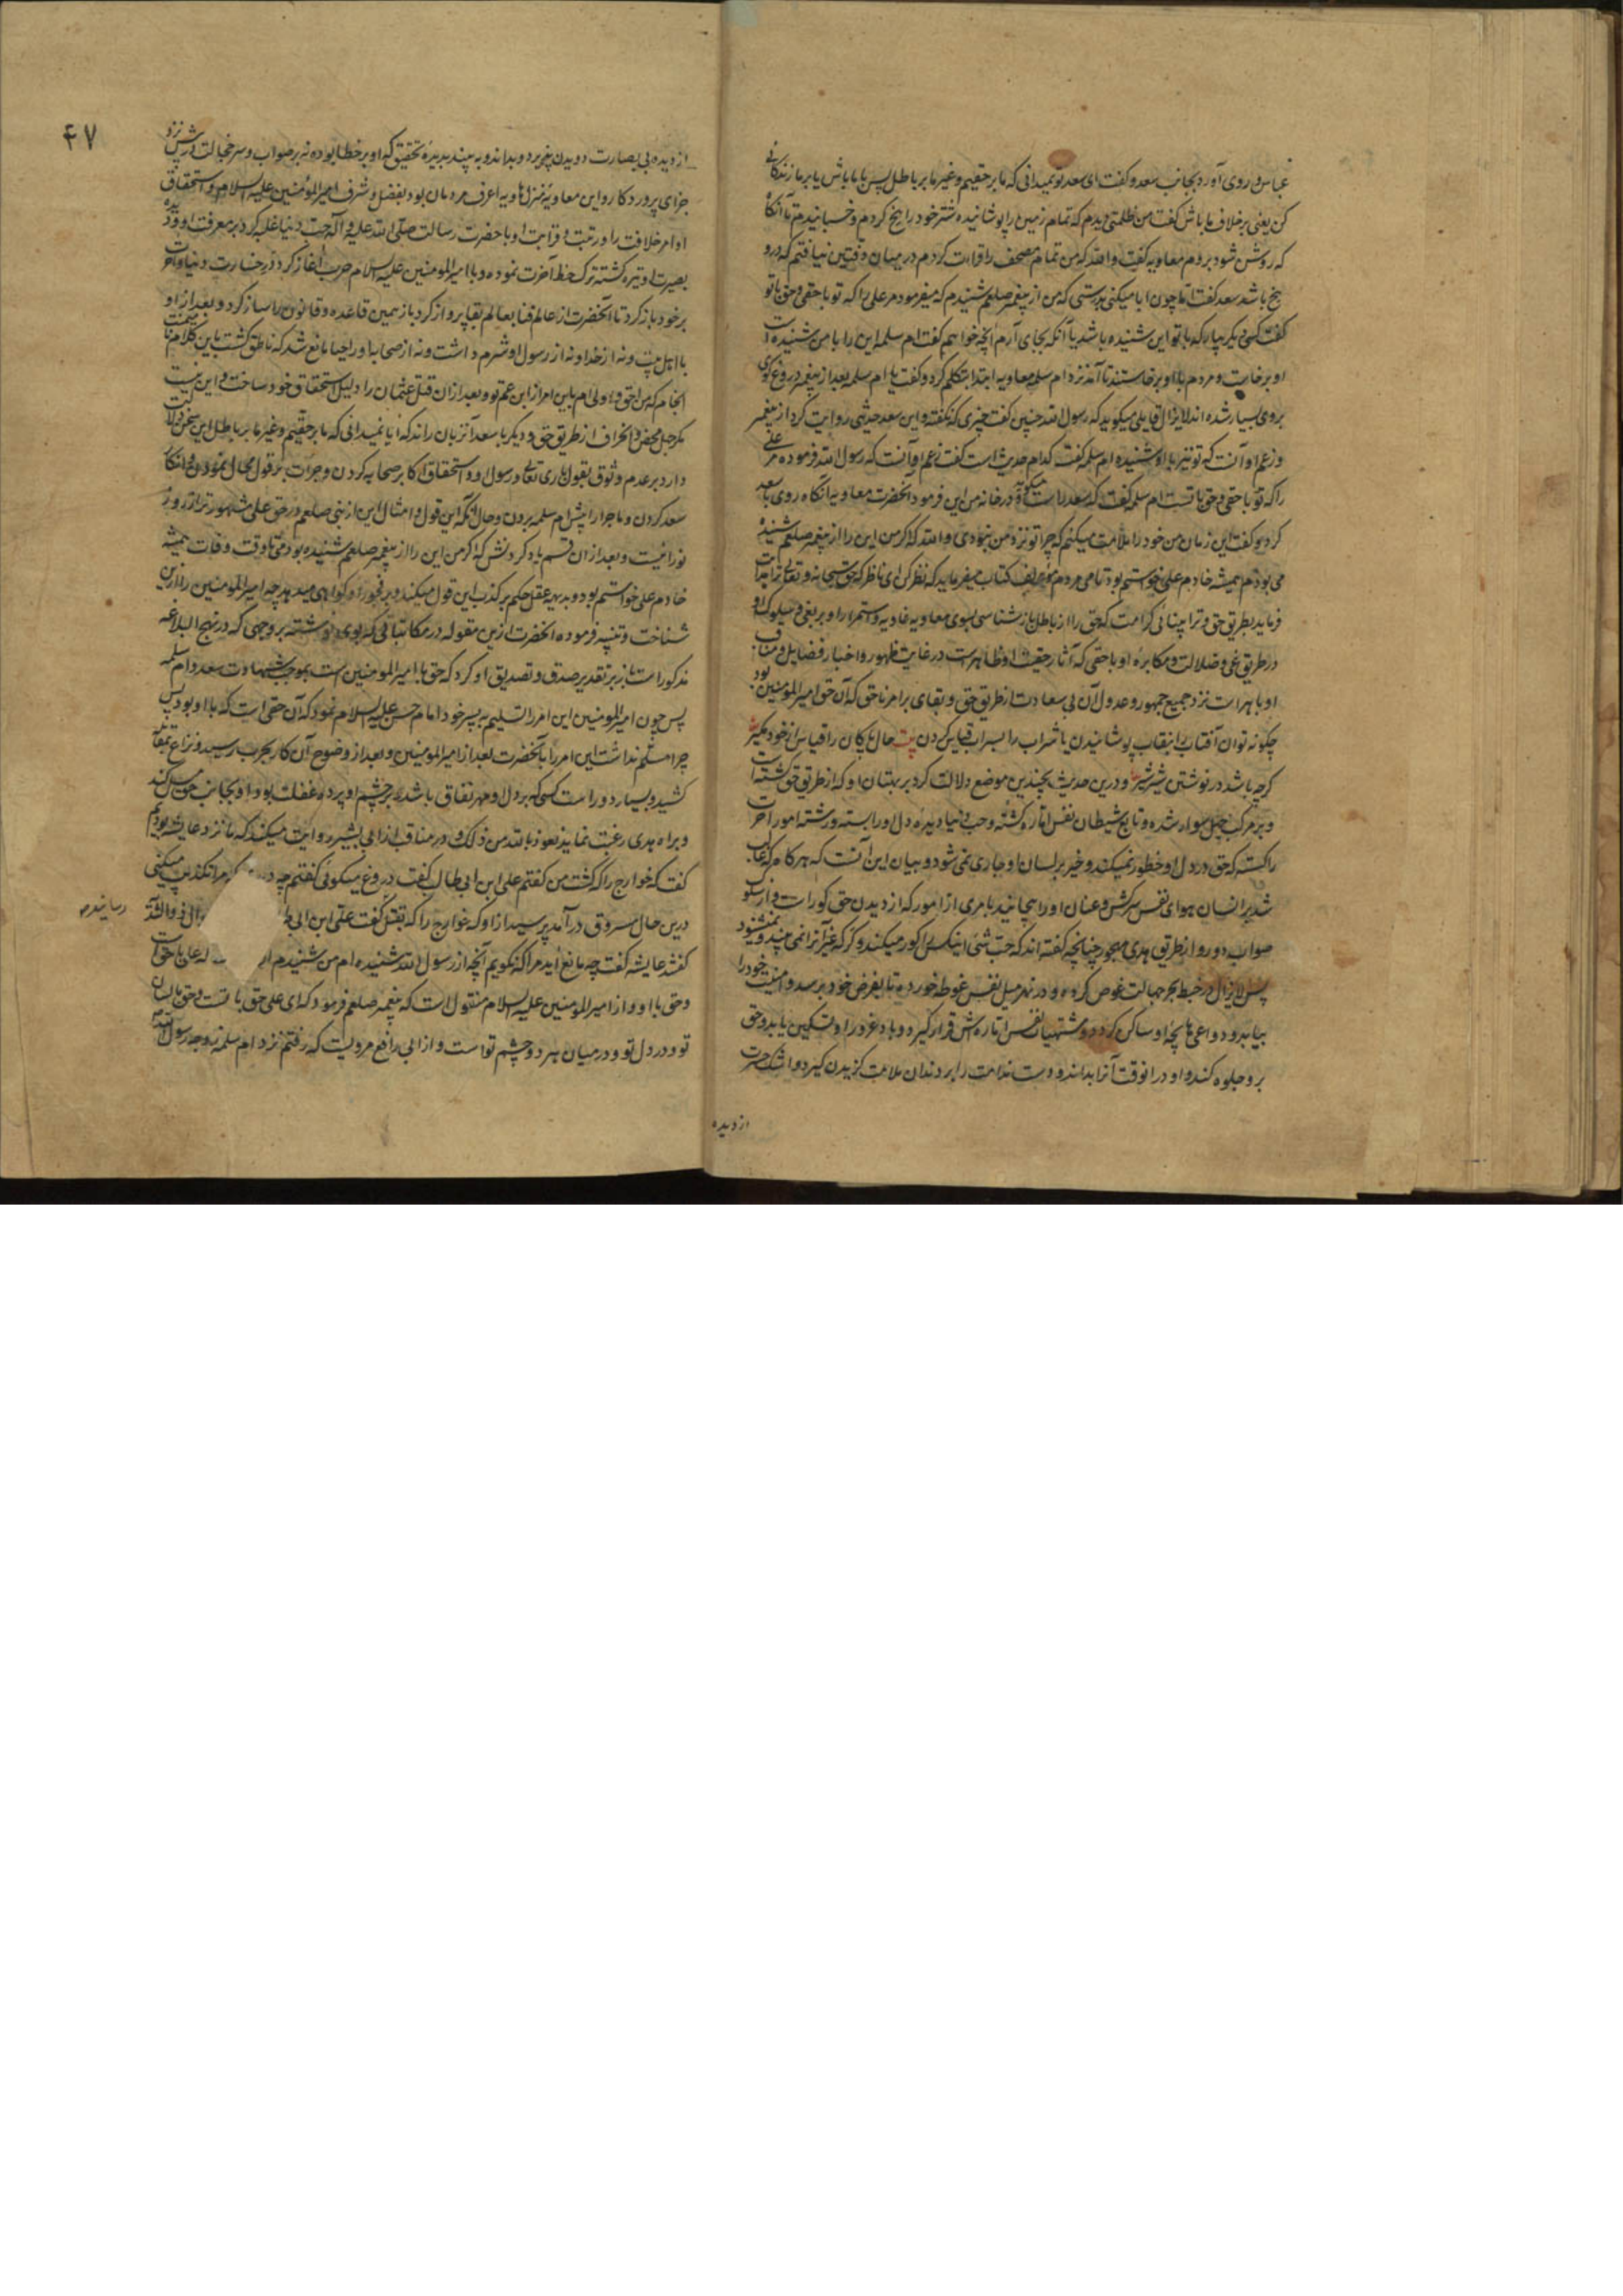 عباس و روی آورد بجانب سعد و گفت ای سعد تو نمیدانی که ما بر حقیم و غیر ما بر باطل پس با ما باش یا بر ما زندگانی
کن یعنی بر خلاف ما باش گفت من ظلمتی دیدم که تمام زمین را پوشانیده شتر خود را ایخ کردم و خسبانیدم تا آنگاه
که روشن شود بروم معاویه گفت والله که من تمام مصحف را قراءت کردم در میان دفتین نیافتم که درو
یخ باشد سعد گفت اما چون ابا میکنی بدرستی که من از پیغمبر صلعم شنیدم که میفرمود مر علی را که تو با حقی و حق با تو
گفت کسی دیگر بیار که با تو این شنیده باشد یا آنکه بجای آرم آنچه خواهم گفت ام سلمه این را با من شنیده است
او برخاست و مردم با او برخاستند تا آمد نزد ام سلمه معاویه ابتدا بتکلم کرد و گفت یا ام سلمه بعد از پیغمبر دروغ گوی
بروی بسیار شده اند لایزال قایلی میگوید که رسول الله چنین گفت چیزی که نگفته و این سعد حدیثی روایت کرد از پیغمبر
و زعم او آنست که تو نیز با او شنیده ام سلمه گفته کدام حدیث است گفت زعم او آنست که رسول الله فرموده مر علی
را که تو با حقی و حق با تست ام سلمه گفت که سعد راست میگوید در خانه من این فرمود آنحضرت معاویه آنگاه روی با سعد
کرد و گفت این زمان من خود را ملامت میکنم که چرا تو نزد من نبودی والله که اگر من این را از پیغمبر صلعم شنیده
می بودم همیشه خادم علی خواستم بود تا می مردم مؤلف کتاب میفرماید که نظر کن ای ناظر که حق سبحانه و تعالی ترا هدایت
فرماید بطریق حق و ترا بینائی کرامت که حق را از باطل باز شناسی بسوی معاویه غاویه و استمرار او بر بغی و سلوک او
در طریق غی و ضلالت و مکابره او با حقی که آثار حقیت او ظاهر است در غایت ظهور و اخبار فضایل و مناقب
او باهر است نزد جمیع جمهور و عدول آن بی سعادت از طریق حق و بقای بر امر ناحق که آن حق امیر المؤمنین بود
چگونه توان آفتاب را بنقاب پوشانیدن یا شراب را بسراب قیاس کردن بیت حال پاکان را قیاس از خود مگیر
گرچه باشد در نوشتن شیر شیر و درین حدیث بچندین موضع دلالت کرد بر بهتان او که از طریق حق گشته است
و بر مرکب جهل سوار شده و تابع شیطان نفس اماره گشته و حب دنیا دیده دل او را بسته و رشته امور آخرت
را گسته که حق در دل او خطور نمیکند و خیر بر لسان او جاری نمی شود و بیان این آنست که هر گاه که غالب
شد بر انسان هوای نفس سرکش و عنان او را پیچانید بامری از امور که از دیدن حق کور است و از سلوک
صواب دور و از طریق هدی مهجور چنانچه گفته اند که حب شئ اینکس را کور میکند و کر که غیر آنرا نمی بیند و نمیشنود
پس لایزال در خبط بحر جهالت غوص کرده و در نهر میل نفس غوطه خورده تا بغرض خود برسد و امنیت خود را
بیابد و دواعی هایجه او ساکن گردد و مشتهیات نفس اماره‌ش قرار گیرد و باد غرور او تسکین یابد و حق
برو جلوه کند و او در آنوقت آنرا بداند و دست ندامت را بر دندان ملامت گزیدن گیرد و اشک حسرت
از دیده
۴۷
از دیده بی بصارت دویدن پذیرد و بداند و به بیند بدیده تحقیق که او بر خطا بوده نه بر صواب و سر خجالت در پیش نزد
جزای پروردگار و این معاویه منزل هاویه اعرف مردمان بود بفضل و شرف امیر المؤمنین علیه السلام و استحقاق
او امر خلافت را و رتبت و قرابت او با حضرت رسالت صلی الله علیه و آله حب دنیا غلبه کرد بر معرفت او و دیده
بصیرت او تیره گشته ترک حظ آخرت نموده و با امیر المومنین علیه السلام حرب آغاز کرد و در خسارت دنیا و آخرت
بر خود باز کرد تا آنحضرت از عالم فنا بعالم بقا پرواز کرد باز همین قاعده و قانون را ساز کرد و بعد از او
با اهل بیت و نه از خدا و نه از رسول او شرم داشت و نه از صحابه او را حیا مانع شد که ناطق گشت باین کلام
که من احق و اولی ام باین امر از ابن عم تو و بعد از ان قتل عثمان را دلیل استحقاق خود ساخت و این نیست
مگر جهل محض و انحراف از طریق حق و دیگر با سعد آنزبان راند که آیا نمیدانی که ما بر حقیم و غیر ما بر باطل این سخن دلالت
دارد بر عدم وثوق بقول باری تعالی و رسول او و استحقاق اکابر صحابه کردن و جرات بر قول محال نمودن و انکار
سعد کردن و ماجرا را پیش ام سلمه بردن و حال آنکه این قول و امثال این از نبی صلعم در حق علی مشهورتر از روز
نورانیت و بعد از ان قسم یاد کردنش که اگر من این را از پیغمبر صلعم شنیده بودمی تا وقت وفات همیشه
خادم علی خواستم بود و بدیهه عقل حکم بر کذب این قول میکند و بر فجور او گواهی میدهد چه امیر المومنین را ازین
شناخت و تنبیه فرموده آنحضرت ازین مقوله در مکاتباتی که بوی نوشته بر وجهی که در نهج البلاغه
مذکور است باز بر تقدیر صدق و تصدیق او کرد که حق با امیر المومنین است بموجب شهادت سعد و ام سلمه
پس چون امیر المومنین این امر را تسلیم به پسر خود امام حسن علیه السلام نمود که آن حقی است که با او بود پس
چرا مسلم نداشت این امر را بآنحضرت بعد از امیر المومنین و بعد از وضوح آن کار بحرب رسید و نزاع بمقاتله
کشید و بسیار دور است کسی که بر دل او مهر نفاق باشد و بر چشم او پرده غفلت بود او بجانب حق میل کند
و براه هدی رغبت نماید نعوذ بالله من ذلک و در مناقب از ابی بشیر روایت میکند که ما نزد عایشه بودیم
گفت که خوارج را که کشت من گفتم علی ابن ابی طالب گفت دروغ میگوئی گفتم چه مرا تکذیب میکنی
درین حال مسروق در آمد پرسید از او که خوارج را که بقتل گفت علی ابن ابی ط
گفتند عایشه گفت چه مانع آید مرا که نگویم آنچه از رسول الله شنیده ام من شنیدم از که علی با حق است
و حق با او و از امیر المومنین علیه السلام منقول است که پیغمبر صلعم فرمود که ای علی حق با تست و حق با لسان
تو و در دل تو و در میان هر دو چشم تو است و از ابی رافع مرویست که رفتم نزد ام سلمه زوجه رسول الله